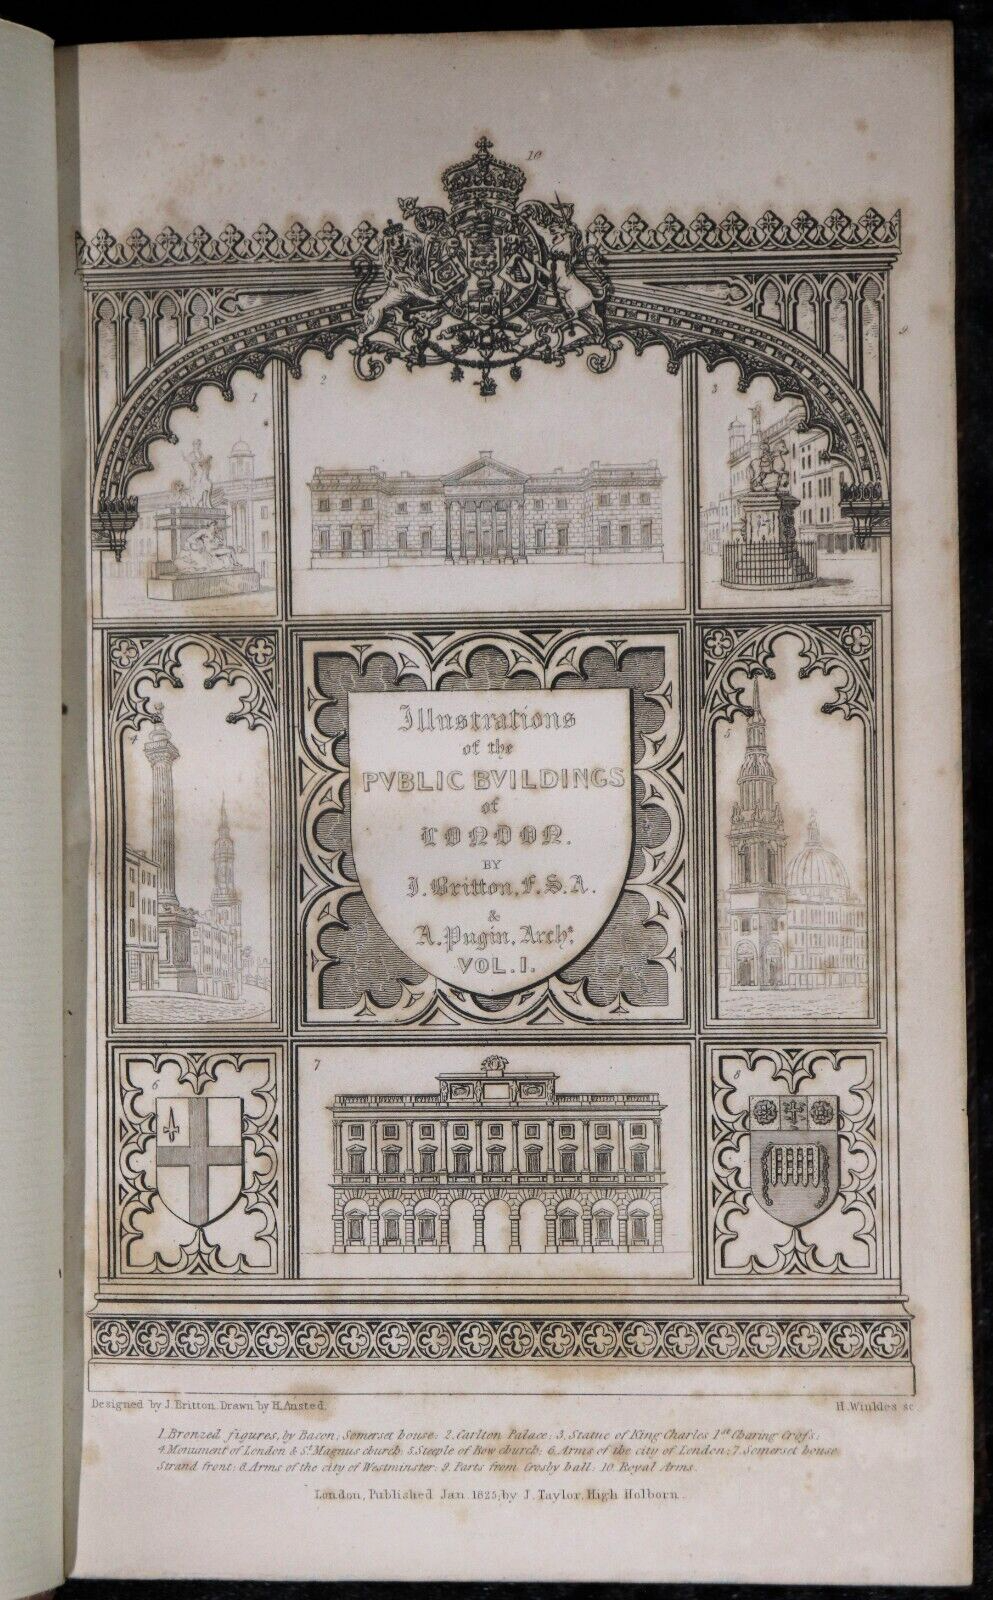 10
9
1
2
3
4
5
Illustrations
of the
PVBLIC BVILDINGS
of
LONDON.
BY
J. Britton, F.S.A.
&
A. Pugin, Archt.
VOL. I.
6
7
8
Designed by J. Britton. Drawn by H. Ansted.
H. Winkles sc
1. Bronzed figures, by Bacon; Somerset house: 2. Carlton Palace: 3. Statue of King Charles 1st Charing Crofs:
4. Monument of London & St. Magnus church: 5. Steeple of Bow church: 6. Arms of the city of London: 7. Somerset house
Strand front: 8. Arms of the city of Westminster: 9. Parts from Crosby hall: 10. Royal Arms.
London, Published Jan. 1825, by J. Taylor, High Holborn.